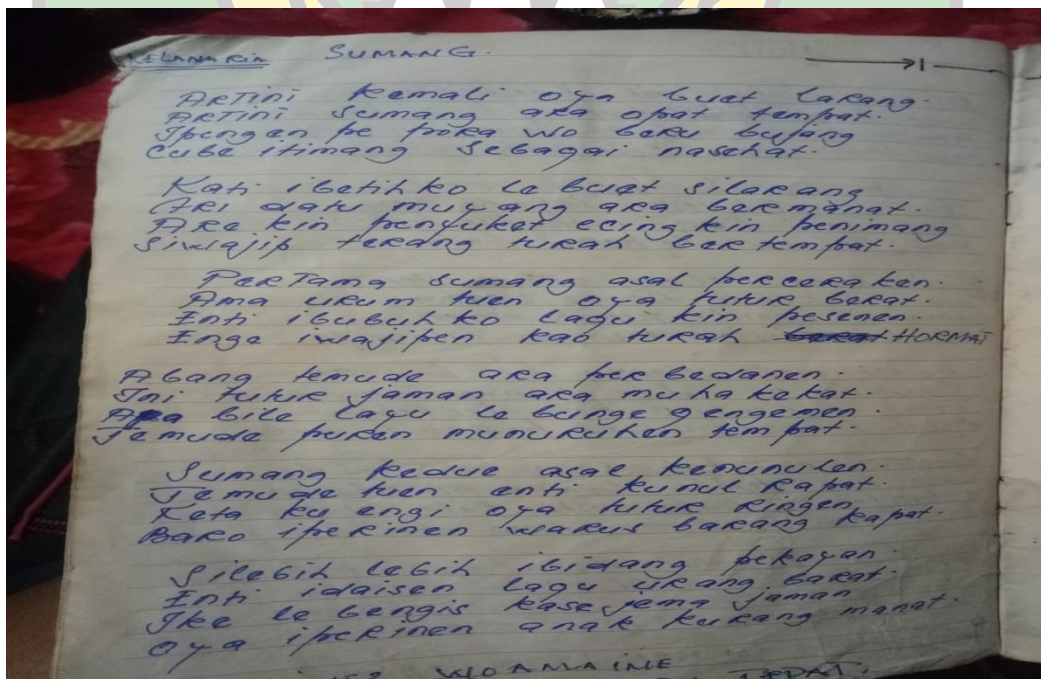 KELANA RIA SUMANG. →1
ARTini kemali oya buet larang.
ARTini sumang ara opat tempat.
Ipengen pe pora wo beru bujang
Cube itimang sebagai nasehat.
Kati ibetih ko le buet silarang
Ari datu muyang ara bermanat.
Are kin penyuket ecing kin penimang
Siwajip terang turah bertempat.
PerTama sumang asal perceraken.
Ama urum tuen oya tutur berat.
Enti ibubuh ko lagu kin pesenen.
Enge iwajipen kao turah HORMAT
Abang temude ara perbedanen.
Ini tutur jaman ara muhakekat.
Apa bile lagu le bunge gengemen.
Temude puren munurihen tempat.
Sumang kedue asal kenunulen.
Temude tuen enti kunul rapat.
Keta ku engi oya tutur ringen
Baro iperinen warus barang kapat.
Silebih lebih ibidang pekayan.
Enti idaisen lagu urang barat.
Ike le bengis kase jema jaman
Oya iperinen anak kurang manat.
WO AMA INE